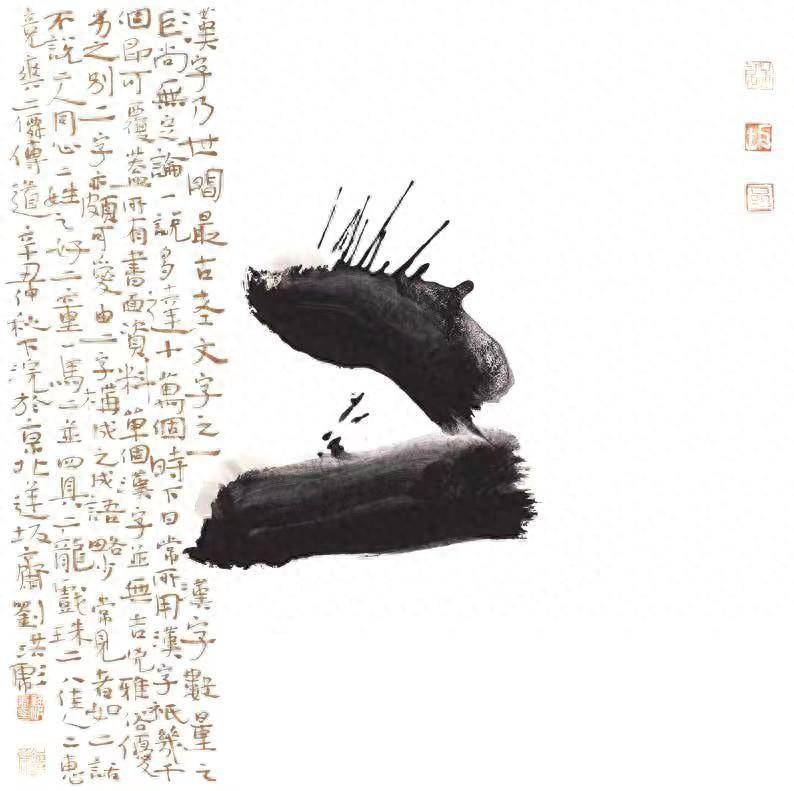 二
漢字乃世間最古老文字之一漢字數量之
巨尚無定論一說多達十萬個時下日常所用漢字祇幾千
個即可覆蓋所有書面資料單個漢字並無吉兇雅俗優
劣之別二字亦頗可愛由二字構成之成語略少常見者如二話
不說二人同心二姓之好二童一馬二並四具二龍戲珠二八佳人二惠
竞爽二僊傳道辛丑仲秋下浣於京北蓮坂齋劉洪彪